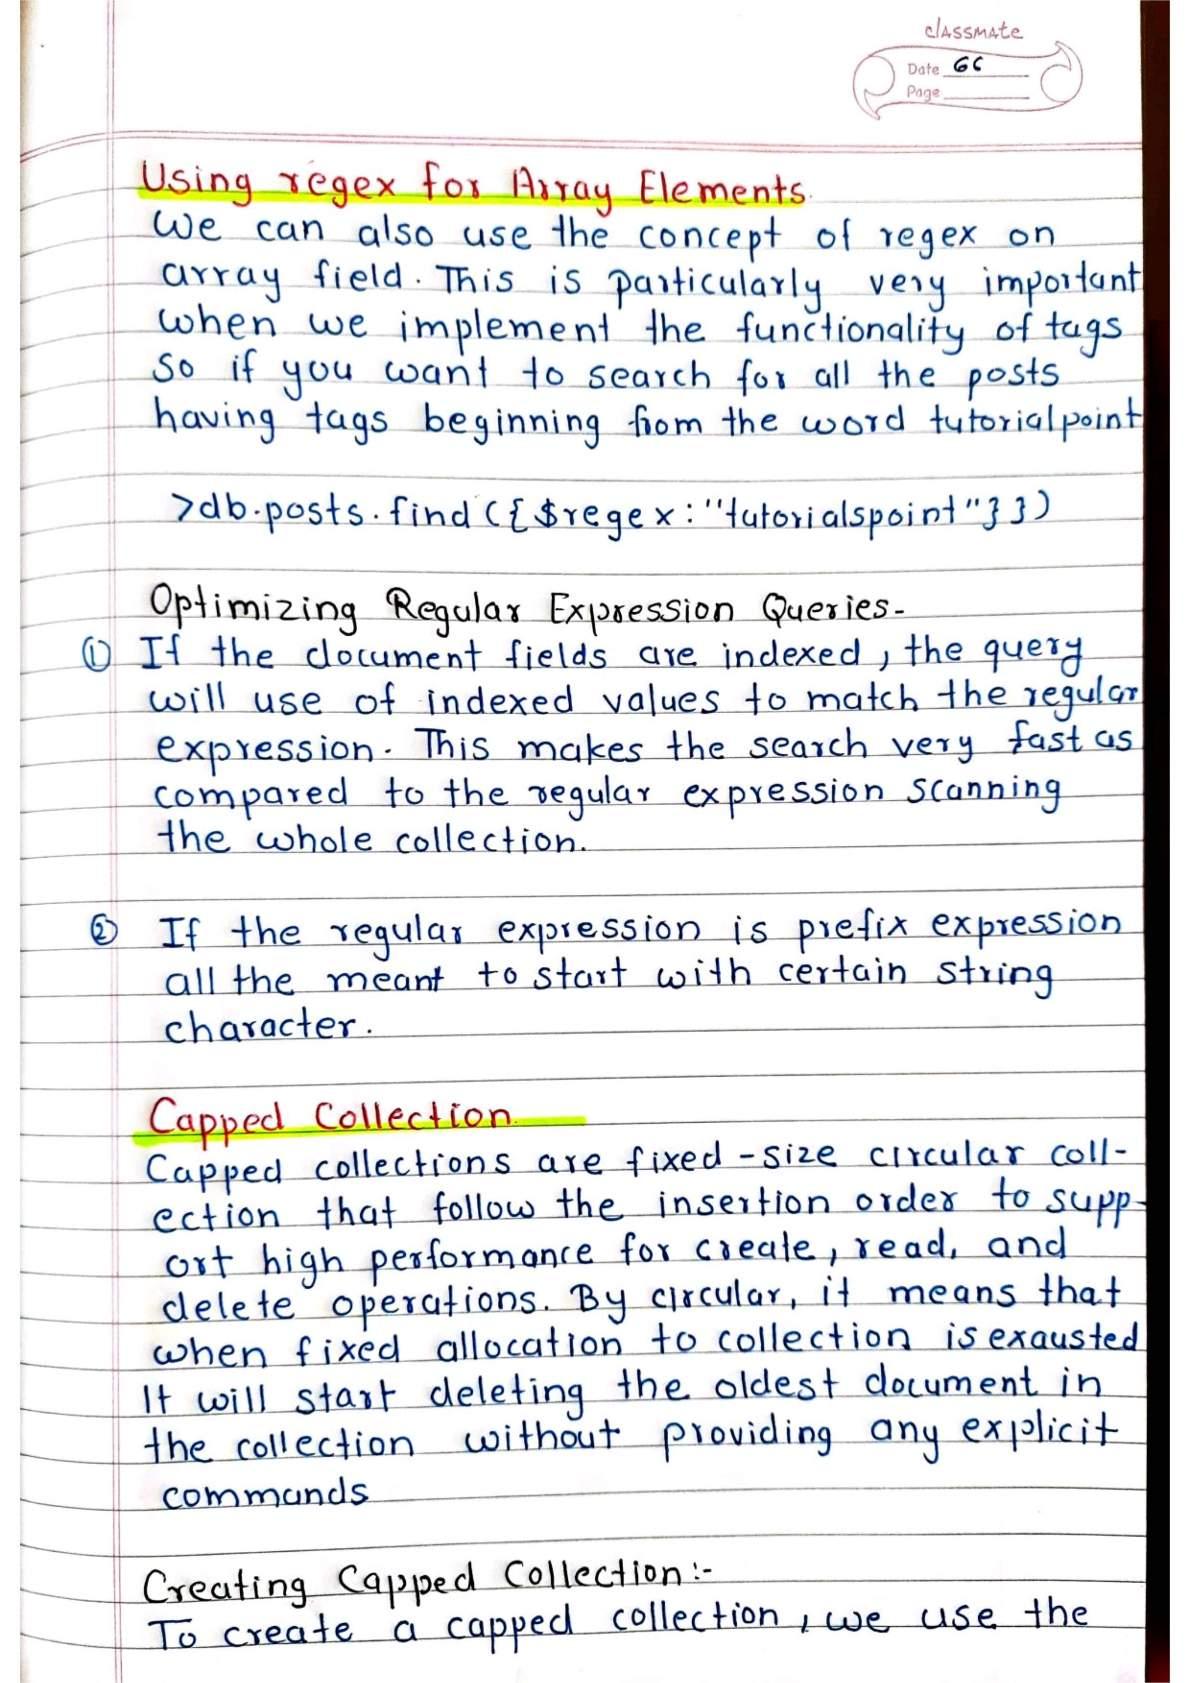 classmate
Date 66
Page
Using regex for Array Elements.
We can also use the concept of regex on
array field. This is particularly very important
when we implement the functionality of tags
So if you want to search for all the posts
having tags beginning from the word tutorialpoint
>db.posts.find({$regex:"tutorialspoint"}})
Optimizing Regular Expression Queries-
① If the document fields are indexed, the query
will use of indexed values to match the regular
expression. This makes the search very fast as
compared to the regular expression scanning
the whole collection.
② If the regular expression is prefix expression
all the meant to start with certain string
character.
Capped Collection.
Capped collections are fixed-size circular coll-
ection that follow the insertion order to supp-
ort high performance for create, read, and
delete operations. By circular, it means that
when fixed allocation to collection is exausted
It will start deleting the oldest document in
the collection without providing any explicit
commands
Creating Capped Collection:-
To create a capped collection, we use the